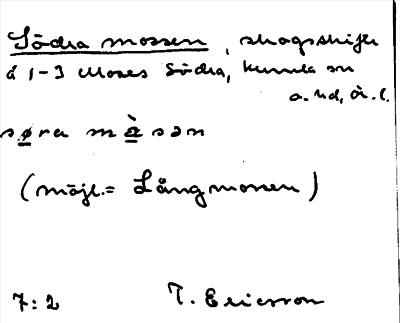 Södra mossen, skogsskifte
å 1-3 Moses Södra, Kumla sn
a. hd, Ör. l.
søra màsən
(möjl. = Långmossen)
7:2 T. Ericsson